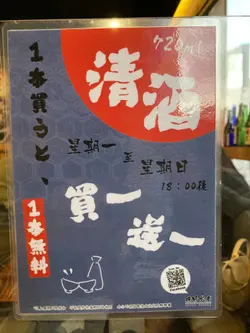 720ml
清酒
1本買うと、
1本無料
星期一
至
星期日
18:00後
買一
送一